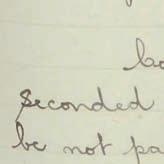 seconded
be not pa